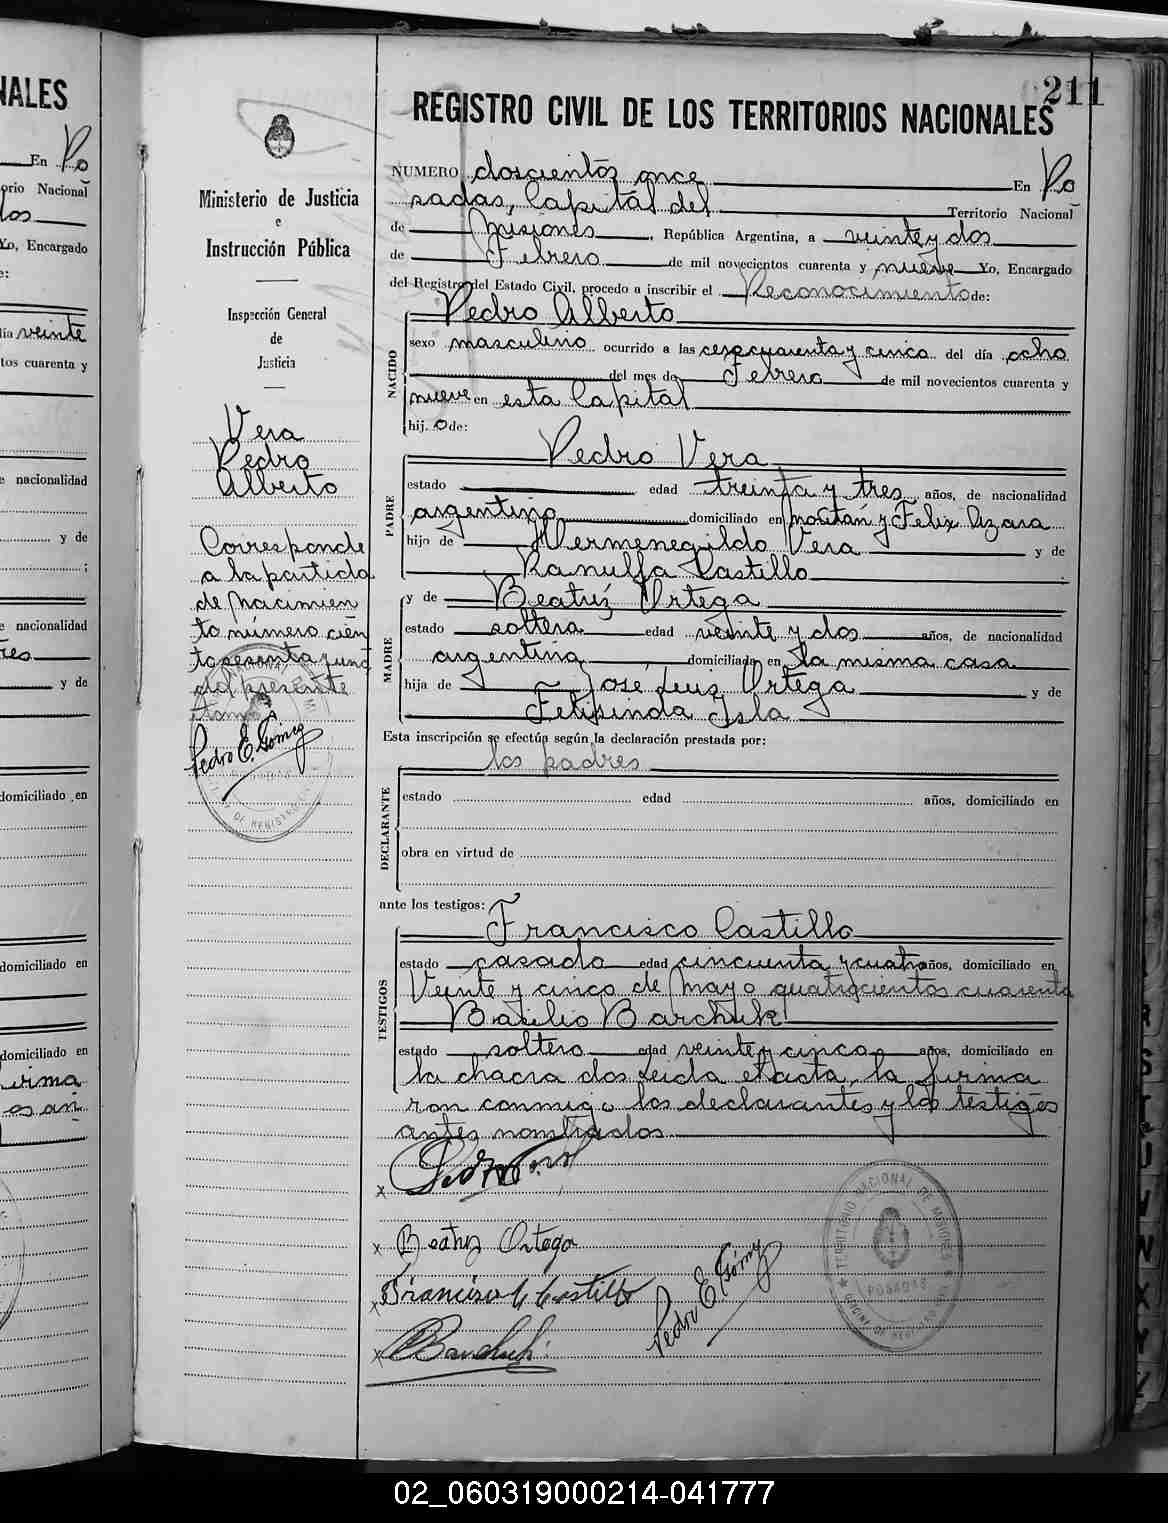 NALES
211
REGISTRO CIVIL DE LOS TERRITORIOS NACIONALES
Ministerio de Justicia
e
Instrucción Pública
Inspección General
de
Justicia
Vera
Pedro
Alberto
Corresponde
a la partida
de nacimien
to número cien
to sesenta y uno
del presente
tomo
Pedro E. Gómez
NUMERO doscientos once En Po
sadas, Capital del Territorio Nacional
de Misiones, República Argentina, a veinte y dos
de Febrero de mil novecientos cuarenta y nueve Yo, Encargado
del Registro del Estado Civil, procedo a inscribir el Reconocimiento de:
NACIDO
Pedro Alberto
sexo masculino ocurrido a las cero cuarenta y cinco del día ocho
del mes de Febrero de mil novecientos cuarenta y
nueve en esta Capital
hij.o de:
PADRE
Pedro Vera
estado edad treinta y tres años, de nacionalidad
argentino domiciliado en Félix Azara
hijo de Hermenegildo Vera y de
Ranulfa Castillo
MADRE
y de Beatríz Ortega
estado soltera edad veinte y dos años, de nacionalidad
argentina, domiciliada en la misma casa
hija de José Luis Ortega y de
Felisinda Isla
Esta inscripción se efectúa según la declaración prestada por:
los padres
DECLARANTE
estado edad años, domiciliado en
obra en virtud de
ante los testigos:
TESTIGOS
Francisco Castillo
estado casado edad cincuenta y cuatro años, domiciliado en
Veinte y cinco de Mayo quatrocientos cuarenta
Basilio Barchuk
estado soltero edad veinte y cinco años, domiciliado en
la chacra dos Leida el acta, la firma
ron conmigo los declarantes y los testigos
antes nombrados
x
x Beatriz Ortega
x Francisco C Castillo
x Barchuk
Pedro E. Gómez
TERRITORIO NACIONAL DE MISIONES
POSADAS
02_060319000214-041777